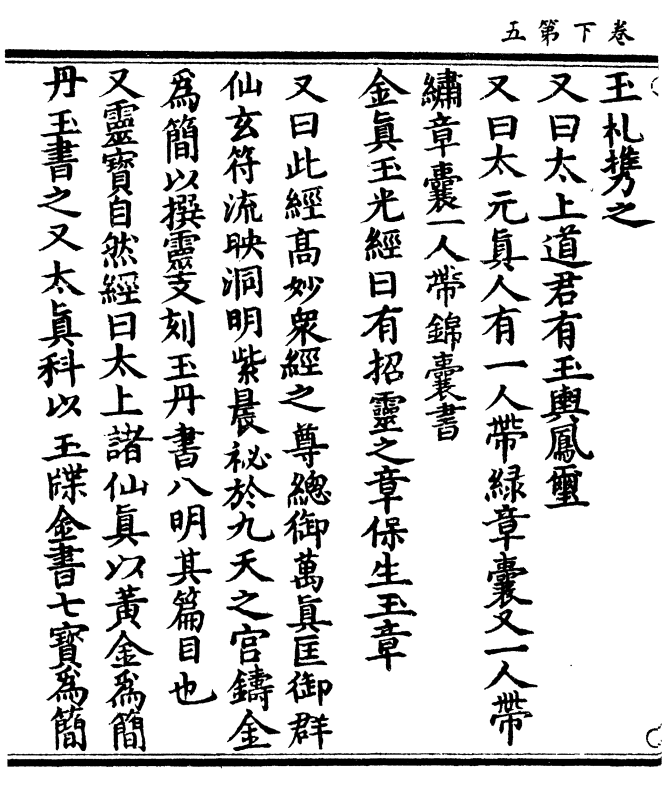 卷下第五
玉札携之
又曰太上道君有玉輿鳳璽
又曰太元眞人有一人帶緑章囊又一人帶
繡章囊一人帶錦囊書
金眞玉光經曰有招靈之章保生玉章
又曰此經高妙衆經之尊總御萬眞匡御群
仙玄符流映洞明紫晨祕於九天之宮鑄金
爲簡以撰靈文刻玉丹書八明其篇目也
又靈寶自然經曰太上諸仙眞以黃金爲簡
丹玉書之又太眞科以玉牒金書七寶爲簡